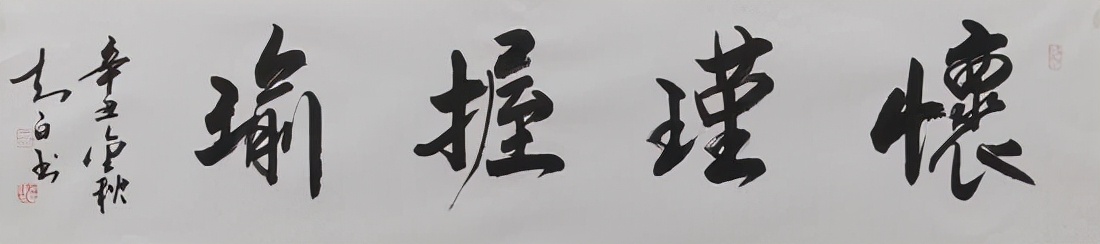 懷瑾握瑜
辛丑金秋
知白书